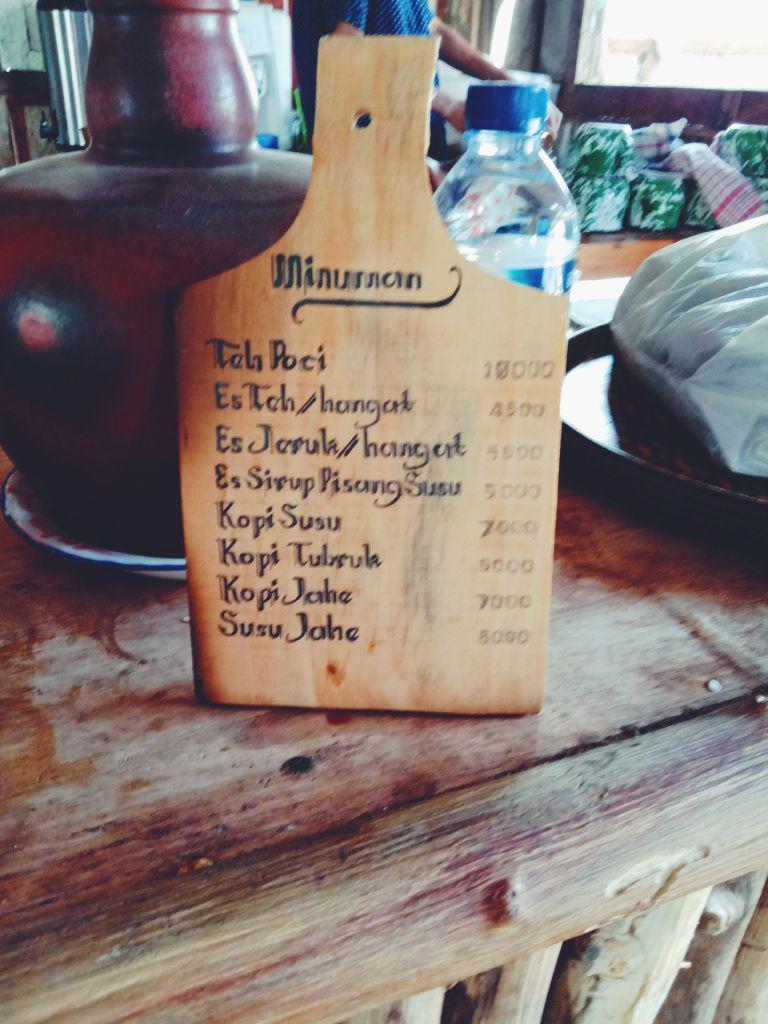 Minuman
Teh Poci 10000
Es Teh/hangat 4500
Es Jeruk/hangat 5000
Es Sirup Pisang Susu 5000
Kopi Susu 7000
Kopi Tubruk 5000
Kopi Jahe 7000
Susu Jahe 8000